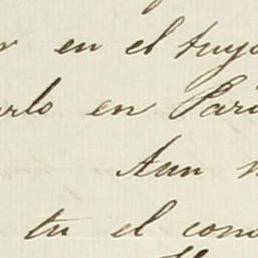 en el tuyo
en Pari
Aun
tu el cono